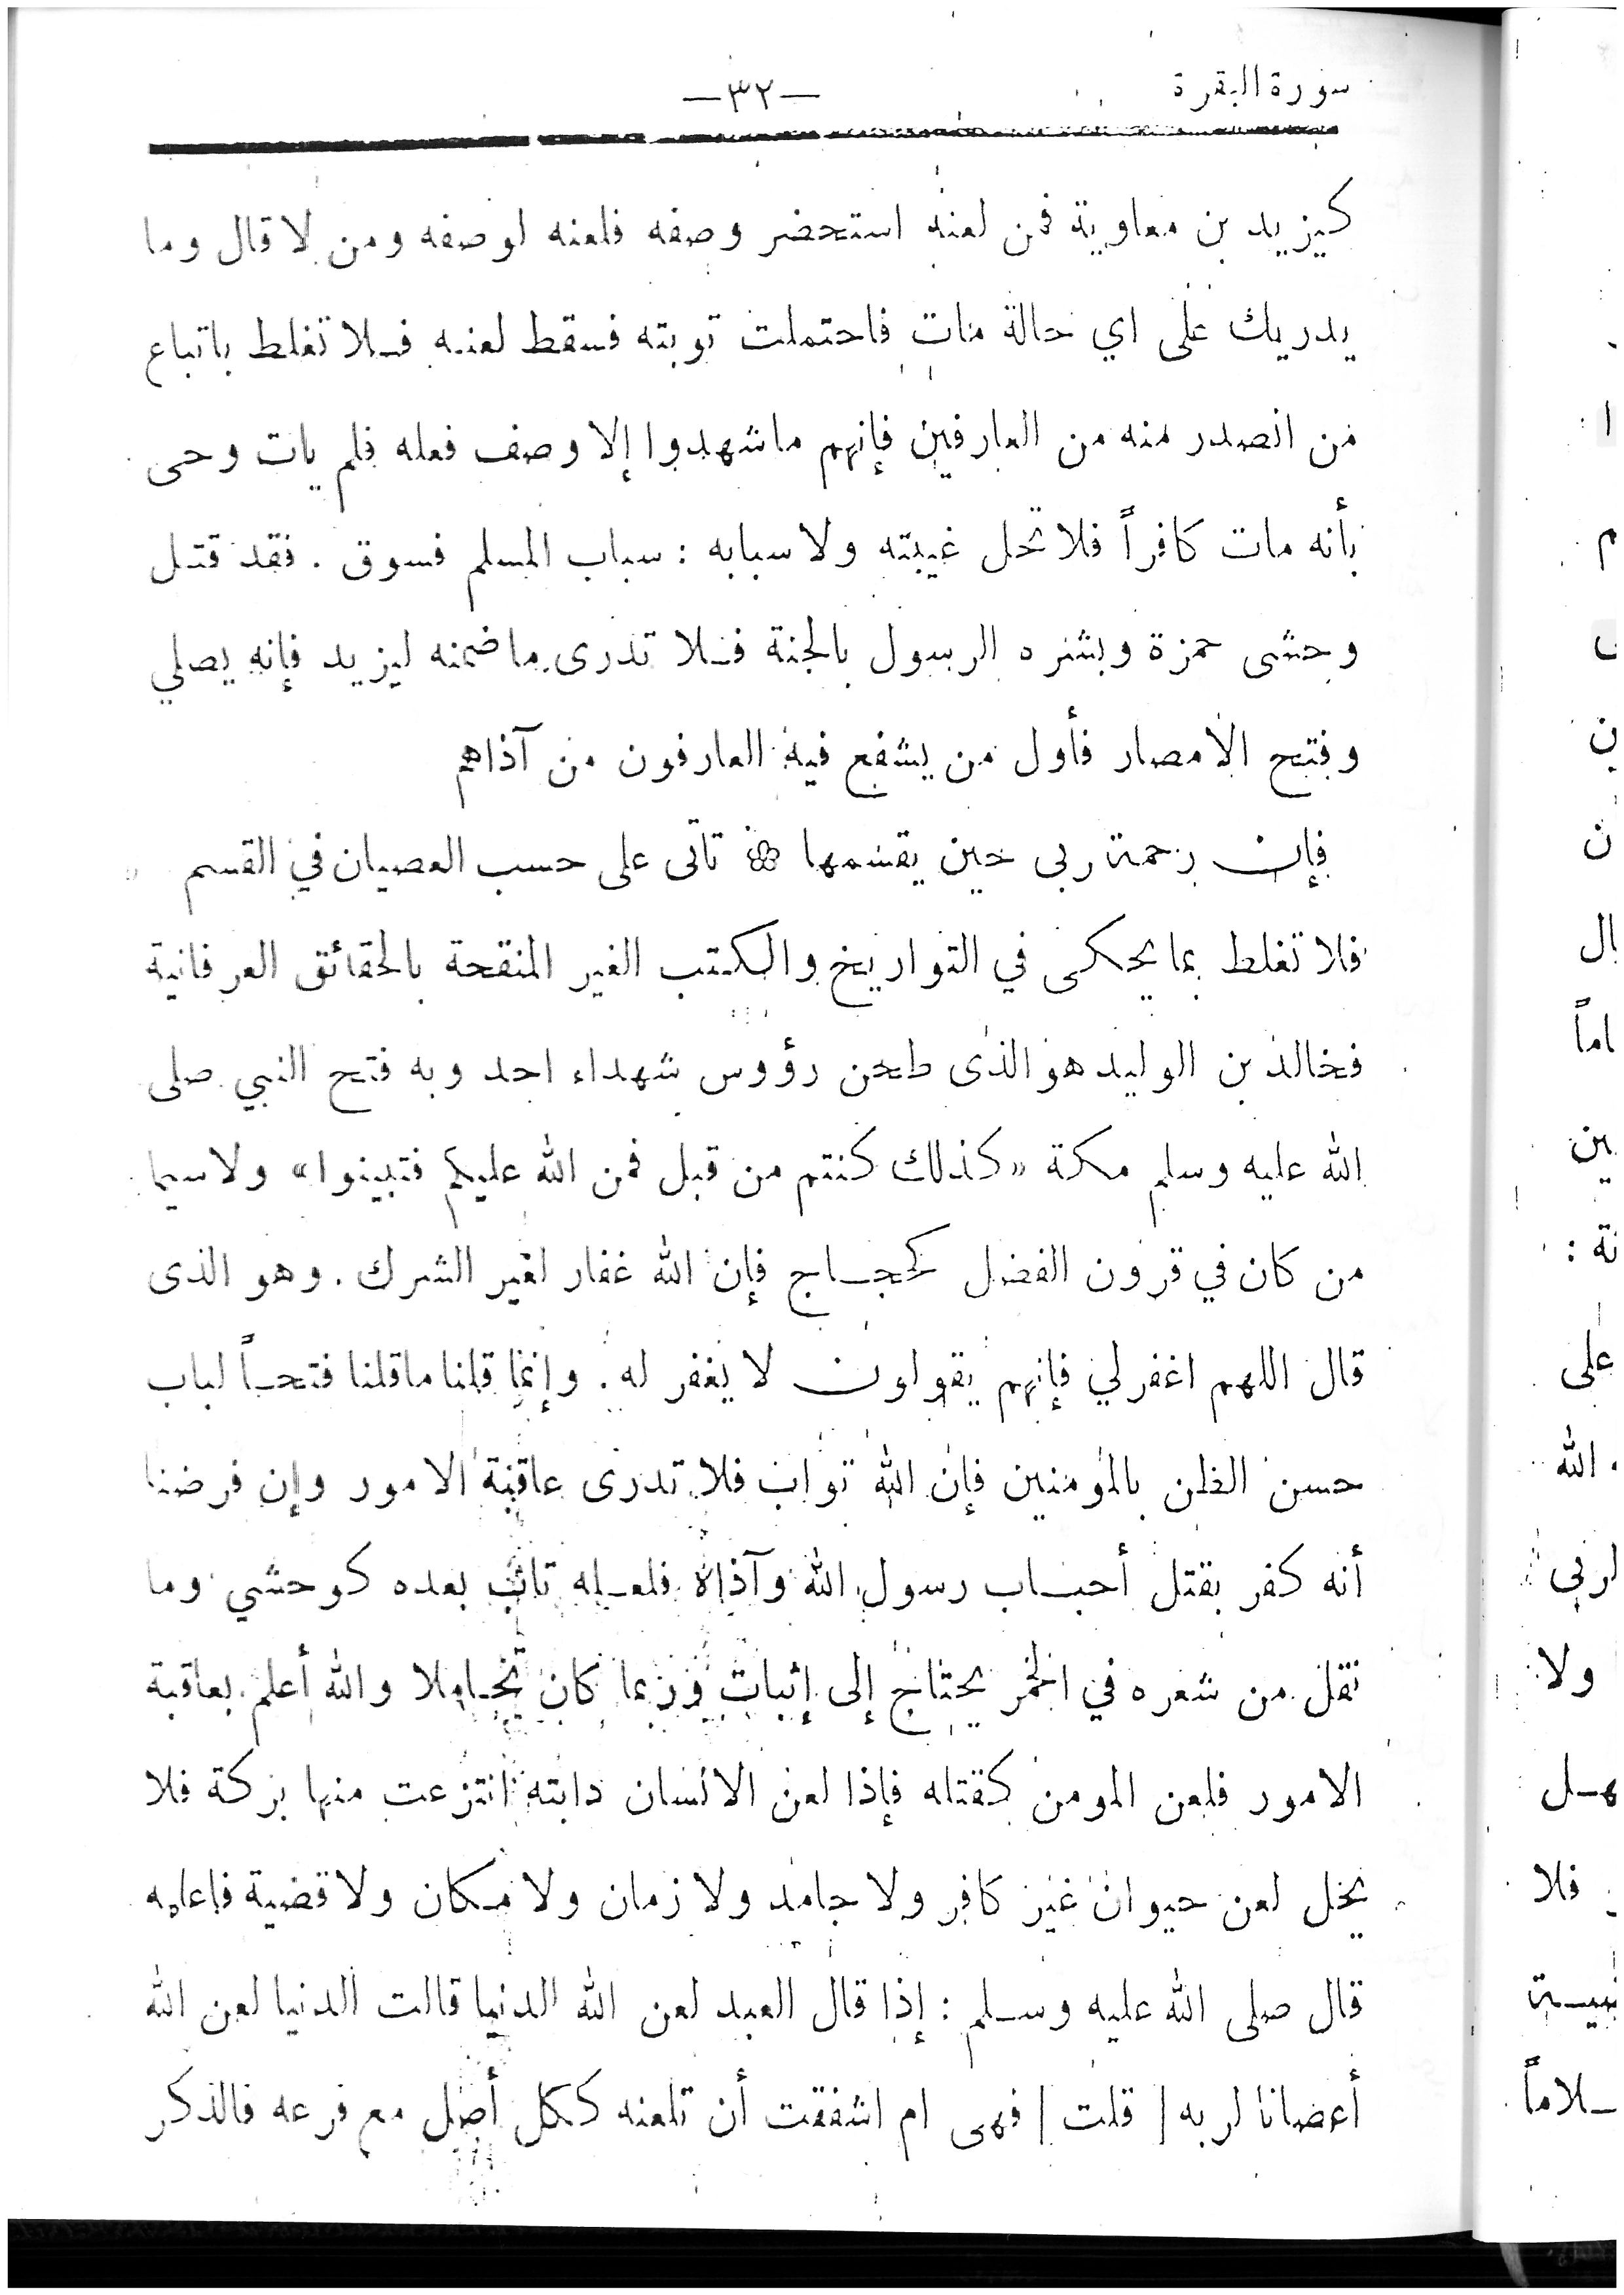 سورة البقرة
—٣٢—
كيزيد بن معاوية فمن لعنه استحضر وصفه فلعنه لوصفه ومن لا قال وما
يدريك على اي حالة مات فاحتملت توبته فسقط لعنه فلا تغلط باتباع
من انصدر منه من العارفين فإنهم ما شهدوا إلا وصف فعله فلم يات وحى
بأنه مات كافراً فلا تحل غيبته ولا سبابه : سباب المسلم فسوق . فقد قتل
وحشى حمزة وبشره الرسول بالجنة فلا تدرى ما ضمنه ليزيد فإنه يصلي
وفتح الأمصار فأول من يشفع فيه العارفون من آذاهم
فإن رحمة ربى حين يقسمها ❀ تأتى على حسب العصيان في القسم
فلا تغلط بما يحكى في التواريخ والكتب الغير المنقحة بالحقائق العرفانية
فخالد بن الوليد هو الذى طحن رؤوس شهداء احد وبه فتح النبي صلى
الله عليه وسلم مكة «كذلك كنتم من قبل فمن الله عليكم فتبينوا» ولا سيما
من كان في قرون الفضل كحجاج فإن الله غفار لغير الشرك . وهو الذى
قال اللهم اغفر لي فإنهم يقولون لا يغفر له . وإنما قلنا ما قلنا فتحاً لباب
حسن الظن بالمؤمنين فإن الله تواب فلا تدرى عاقبة الامور وإن فرضنا
أنه كفر بقتل أحباب رسول الله وآذاه فلعله تاب بعده كوحشي وما
نقل من شعره في الخمر يحتاج إلى إثبات وربما كان تحاملا والله أعلم بعاقبة
الامور فلعن المومن كقتله فإذا لعن الانسان دابته انتزعت منها بركة فلا
يحل لعن حيوان غير كافر ولا جامد ولا زمان ولا مكان ولا قضية فاعله
قال صلى الله عليه وسلم : إذا قال العبد لعن الله الدنيا قالت الدنيا لعن الله
أعصانا لربه / قلت / فهى ام اشفقت أن تلعنه ككل أصل مع فرعه فالذكر